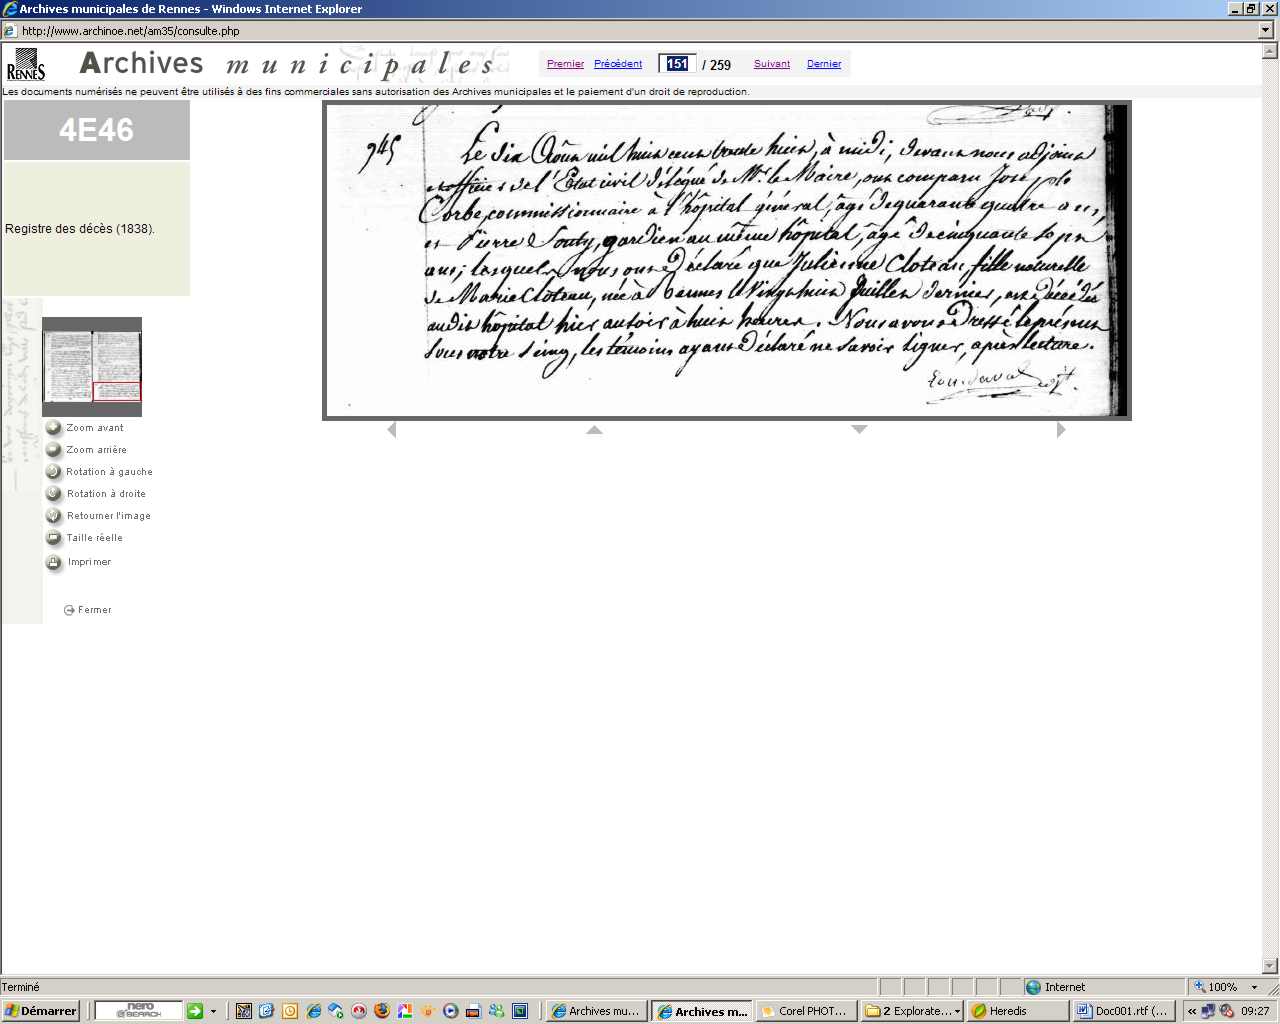 Archives municipales de Rennes - Windows Internet Explorer
http://www.archinoe.net/am35/consulte.php
RENNES
Archives municipales
Premier Précédent 151 / 259 Suivant Dernier
Les documents numérisés ne peuvent être utilisés à des fins commerciales sans autorisation des Archives municipales et le paiement d'un droit de reproduction.
4E46
Registre des décès (1838).
945
Le dix Août mil huit cent trente huit, à midi, devant nous adjoint
et officier de l'Etat civil délégué de Mr. le Maire, ont comparu
Corbe, commissionnaire à l'hôpital général, âgé de quarante quatre ans,
et Pierre Souty, gardien au même hôpital, âgé de cinquante sept
ans; lesquels nous ont Déclaré que Julienne Cloteau, fille naturelle
de Marie Cloteau, née à Rennes le Vingt huit Juillet dernier, est décédée
audit hôpital hier au soir à huit heures. Nous avons Dressé le présent
sous notre seing, les témoins ayant Déclaré ne savoir signer, après lecture.
adjt.
Zoom avant
Zoom arrière
Rotation à gauche
Rotation à droite
Retourner l'image
Taille réelle
Imprimer
Fermer
Terminé
Internet
100%
Démarrer
nero
SEARCH
Archives mu...
Archives m...
Corel PHOT...
2 Explorate...
Heredis
Doc001.rtf (...
« 09:27